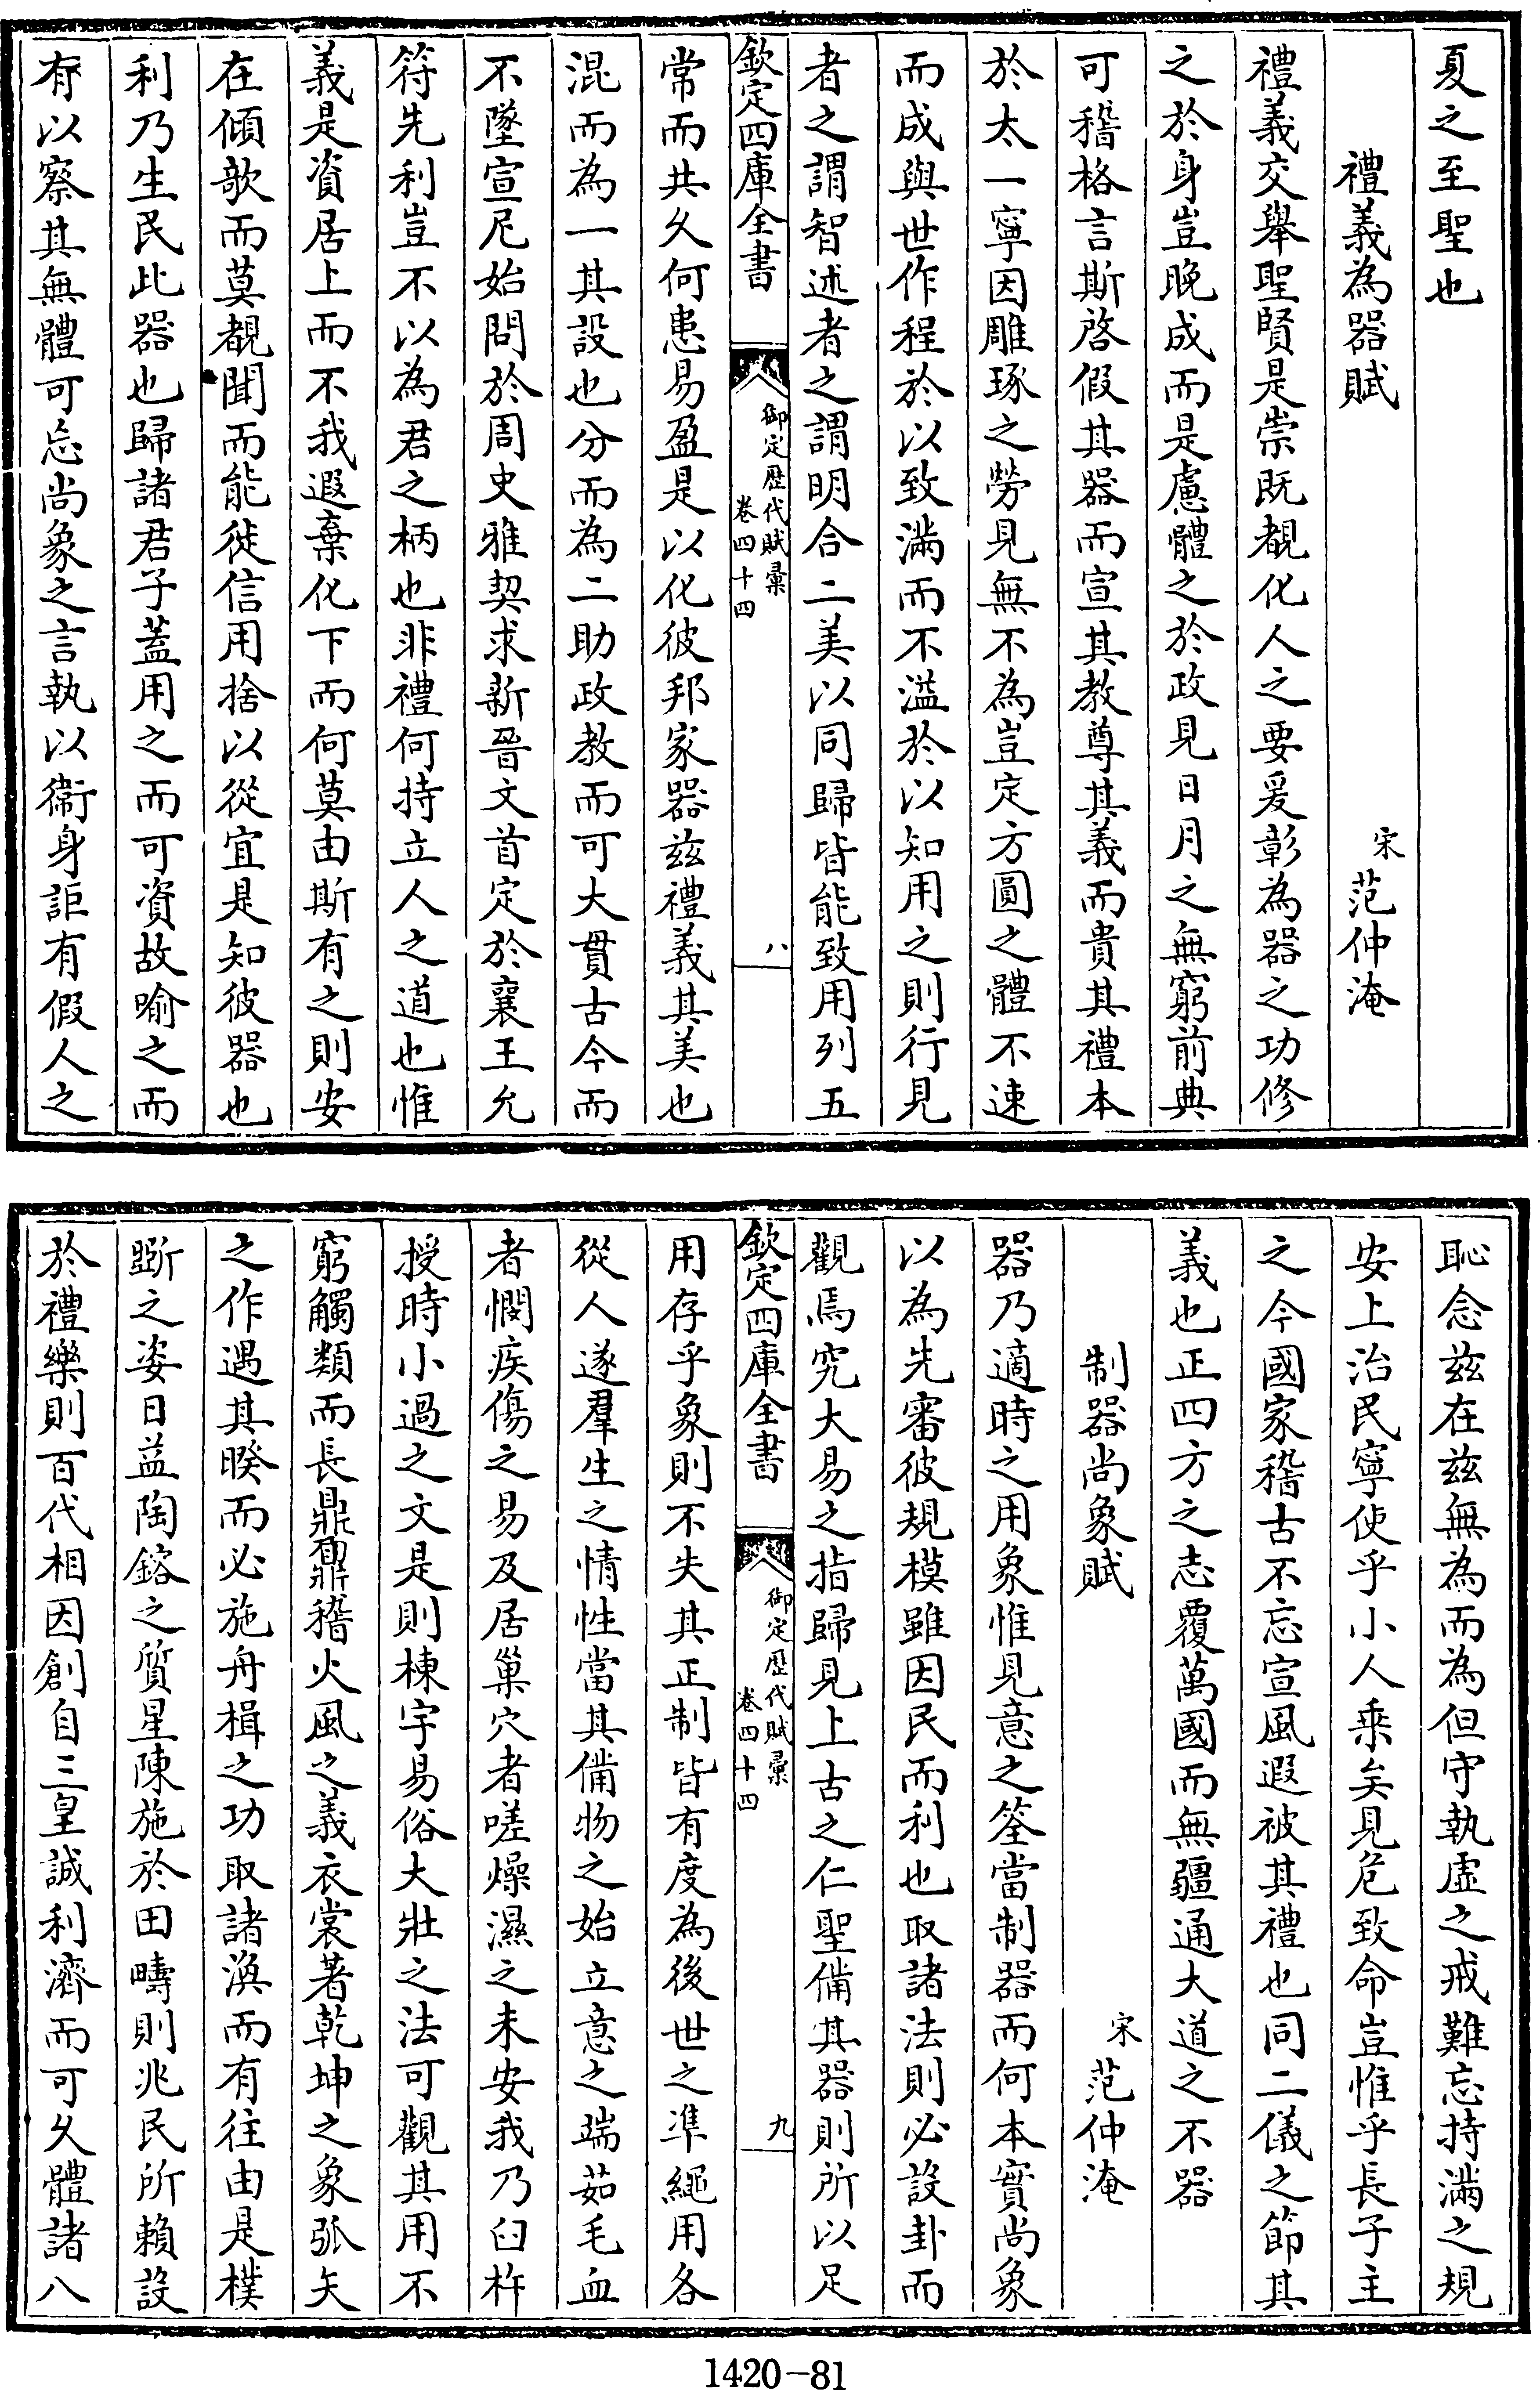 夏之至聖也
禮義為器賦
宋范仲淹
禮義交舉聖賢是崇既覩化人之要爰彰為器之功修
之於身豈晚成而是慮體之於政見日月之無窮前典
可稽格言斯啓假其器而宣其教尊其義而貴其禮本
於太一寧因雕琢之勞見無不為豈定方圓之體不速
而成與世作程於以致滿而不溢於以知用之則行見
者之謂智述者之謂明合二美以同歸皆能致用列五
欽定四庫全書
御定歷代賦彙
卷四十四
八
常而共久何患易盈是以化彼邦家器兹禮義其美也
混而為一其設也分而為二助政教而可大貫古今而
不墜宣尼始問於周史雅契求新晉文首定於襄王允
符先利豈不以為君之柄也非禮何持立人之道也惟
義是資居上而不我遐棄化下而何莫由斯有之則安
在傾欹而莫覩聞而能徙信用捨以從宜是知彼器也
利乃生民此器也歸諸君子蓋用之而可資故喻之而
有以察其無體可忘尚象之言執以衞身詎有假人之
恥念兹在兹無為而為但守執虛之戒難忘持滿之規
安上治民寧使乎小人乘矣見危致命豈惟乎長子主
之今國家稽古不忘宣風遐被其禮也同二儀之節其
義也正四方之志覆萬國而無疆通大道之不器
制器尚象賦
宋范仲淹
器乃適時之用象惟見意之筌當制器而何本實尚象
以為先審彼規模雖因民而利也取諸法則必設卦而
觀焉究大易之指歸見上古之仁聖備其器則所以足
欽定四庫全書
御定歷代賦彙
卷四十四
九
用存乎象則不失其正制皆有度為後世之準繩用各
從人遂羣生之情性當其備物之始立意之端茹毛血
者憫疾傷之易及居巢穴者嗟燥濕之未安我乃臼杵
授時小過之文是則棟宇易俗大壯之法可觀其用不
窮觸類而長鼎鼐稽火風之義衣裳著乾坤之象弧矢
之作遇其暌而必施舟楫之功取諸渙而有往由是樸
斲之姿日益陶鎔之質星陳施於田疇則兆民所賴設
於禮樂則百代相因創自三皇誠利濟而可久體諸八
1420-81